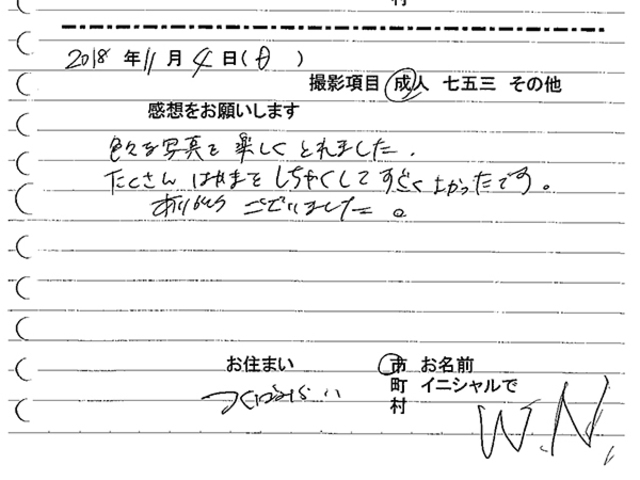 村
2018年11月4日(日)
撮影項目 成人 七五三 その他
感想をお願いします
色々な写真を楽しくとれました.
たくさん はかまを しちゃくして すごく よかったです。
ありがとう ございました。
お住まい 市 お名前
町 イニシャルで
村
W.N.